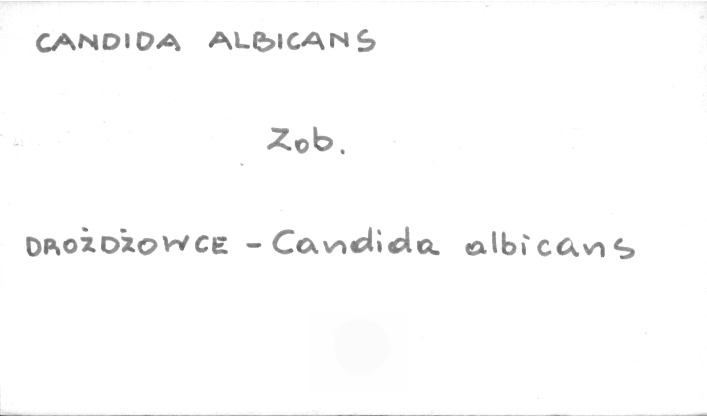 CANDIDA ALBICANS
Zob.
DROŻDŻOWCE - Candida albicans